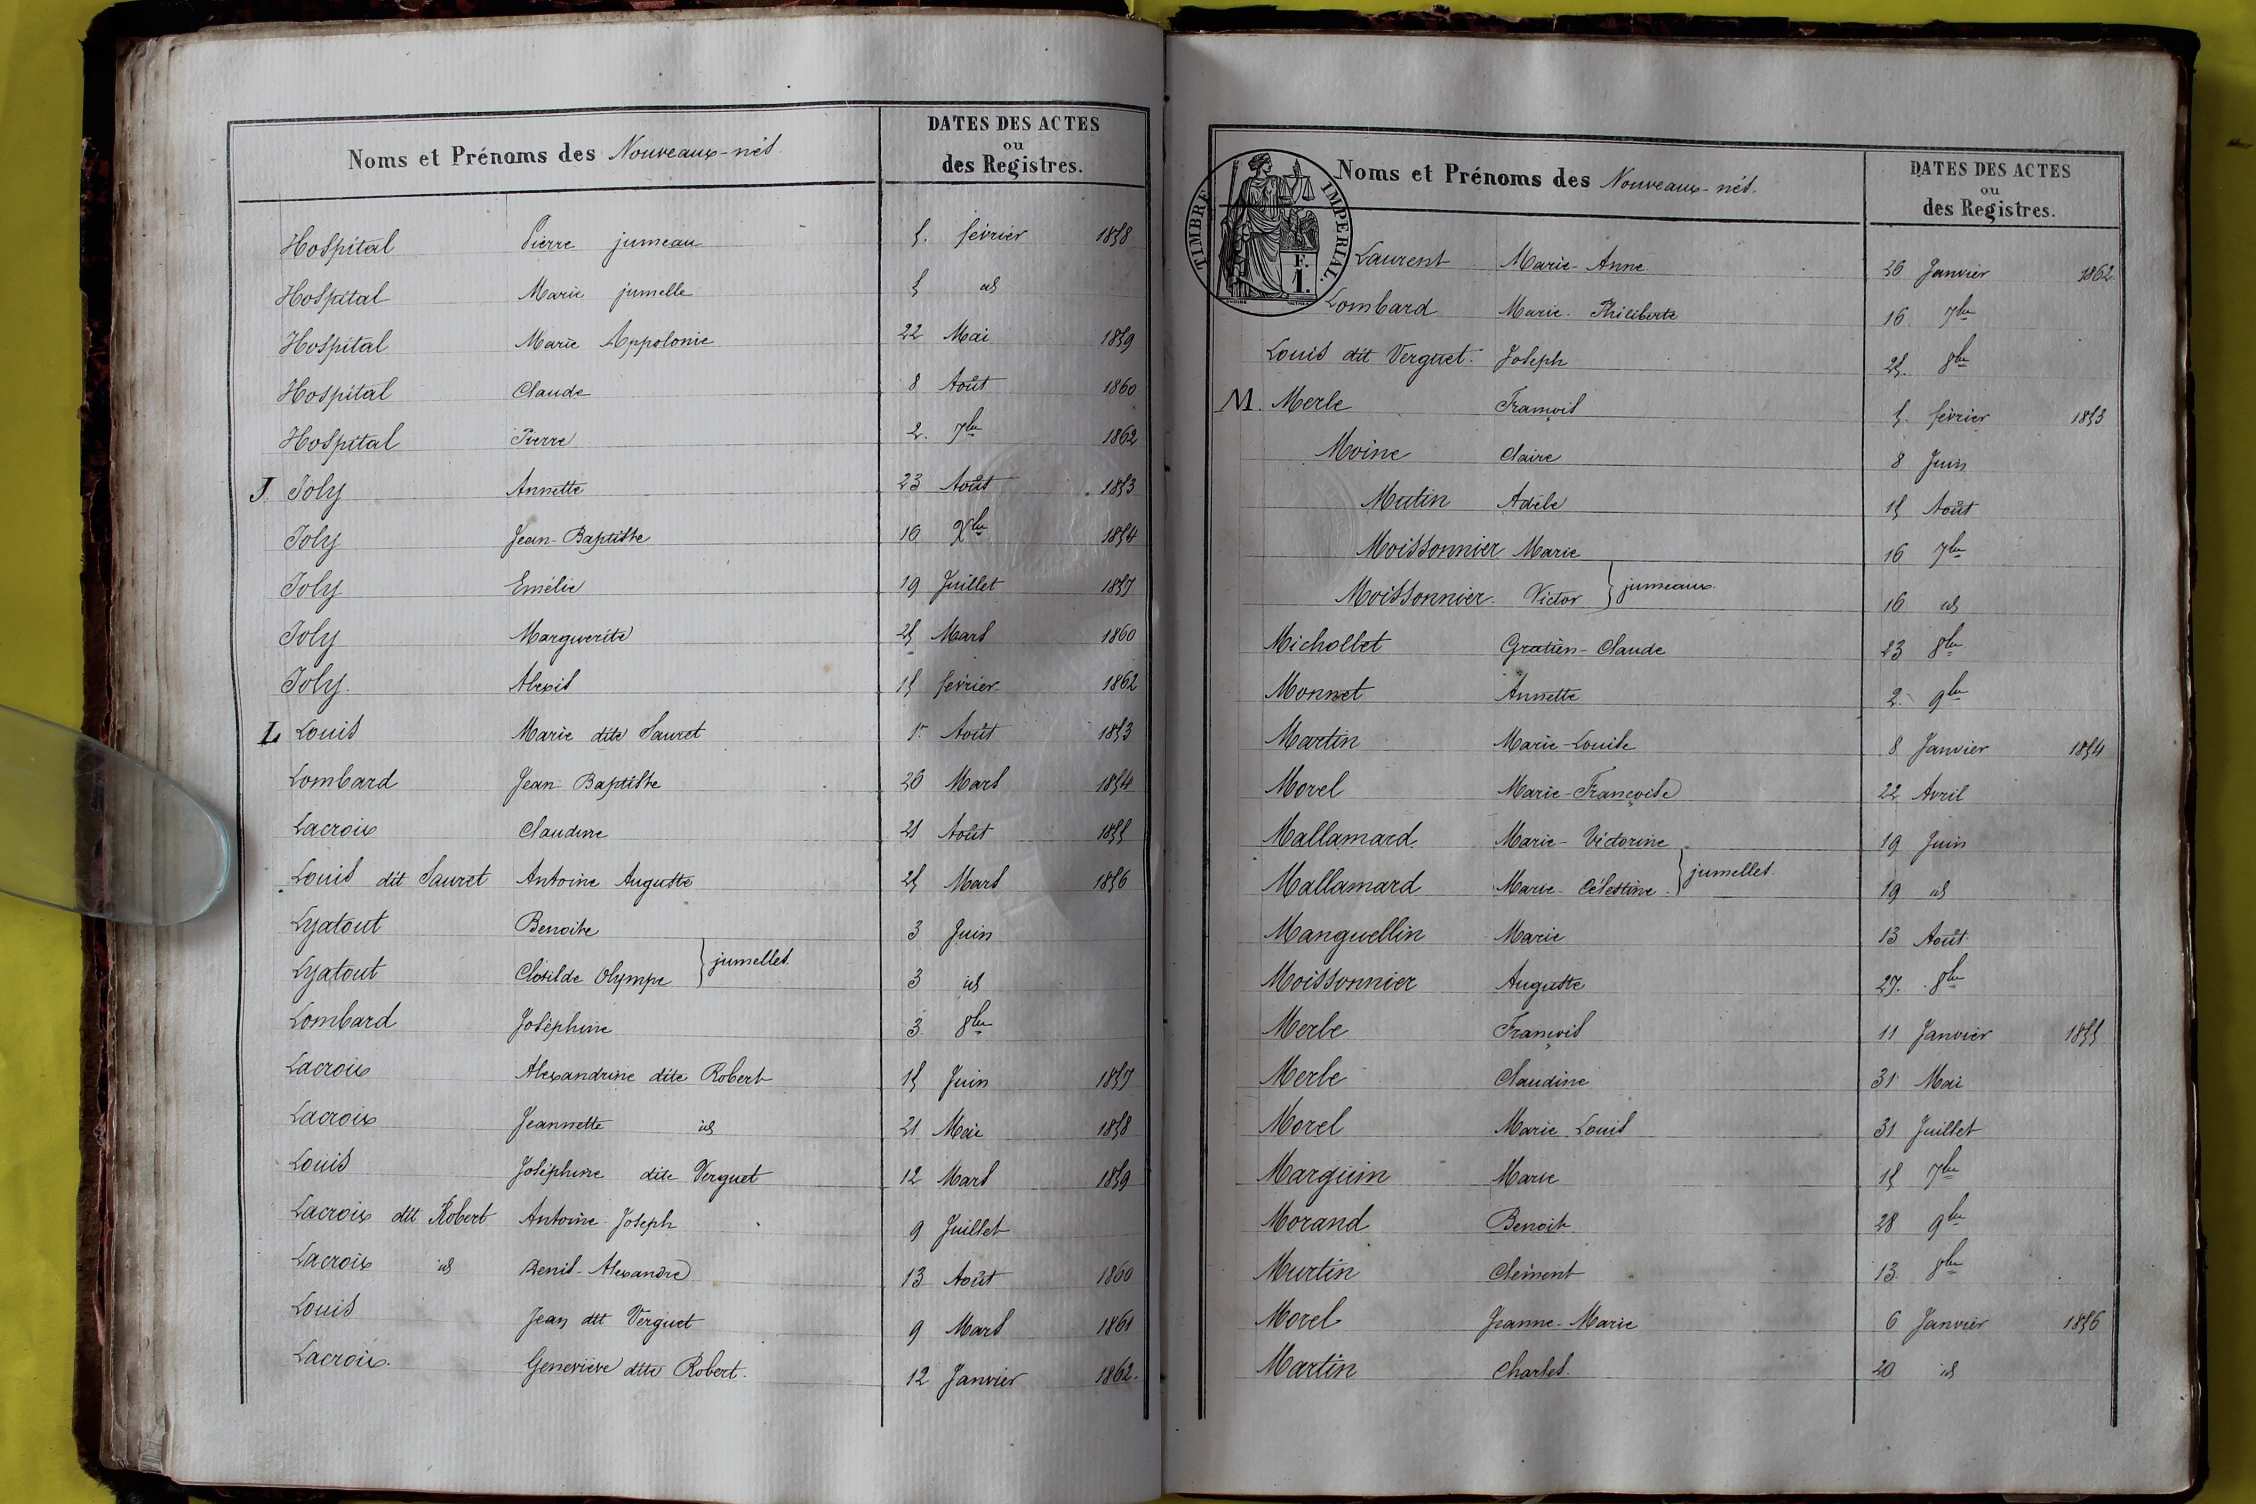 Noms et Prénoms des Nouveaux-nés.
DATES DES ACTES
ou
des Registres.
Hospital Pierre jumeau 5. février 1858
Hospital Marie jumelle 5 id
Hospital Marie Appolonie 22 Mai 1859
Hospital Claude 8 Août 1860
Hospital Pierre 2. 7bre 1862
J. Joly Annette 23 Août 1853
Joly Jean-Baptiste 16 Xbre 1854
Joly Emélie 19 Juillet 1857
Joly Marguerite 25 Mars 1860
Joly. Alexis 15 février 1862
L Louis Marie dite Sauret 1er Août 1853
Lombard Jean Baptiste 26 Mars 1854
Lacroix Claudine 21 Août 1855
Louis dit Sauret Antoine Auguste 25 Mars 1856
Lyatout Benoite 3 Juin
Lyatout Clotilde Olympe } jumelles. 3 id
Lombard Joséphine 3. 8bre
Lacroix Alexandrine dite Robert 15 Juin 1857
Lacroix Jeannette id 21 Mai 1858
Louis Joséphine dite Verguet 12 Mars 1859
Lacroix dit Robert Antoine Joseph 9 Juillet
Lacroix id Denis-Alexandre 13 Août 1860
Louis Jean dit Verguet 9 Mars 1861
Lacroix. Geneviève dite Robert. 12 Janvier 1862.
TIMBRE IMPERIAL.
F.
1.
Noms et Prénoms des Nouveaux-nés.
DATES DES ACTES
ou
des Registres.
Laurent Marie-Anne 26 Janvier 1862
Lombard Marie. Philiberte 16 7bre
Louis dit Verguet. Joseph 25. 8bre
M. Merle François 5. février 1853
Moine Claire 8 Juin
Mutin Adèle 15 Août
Moissonnier Marie 16 7bre
Moissonnier. Victor } jumeaux. 16 id
Michollet Gratien-Claude 23 8bre
Monnet Annette 2. 9bre
Martin Marie-Louise 8 Janvier 1854
Morel Marie-Françoise 22 Avril
Mallamard. Marie-Victorine 19 Juin
Mallamard Marie-Célestine. } jumelles. 19 id
Manguellin Marie 13 Août
Moissonnier Auguste 27. 8bre
Merle François 11 Janvier 1855
Merle Claudine 31 Mai
Morel Marie Louis 31 Juillet
Marguin Marie 15 7bre
Morand Benoit 28 9bre
Murtin Clément 13. 8bre
Morel Jeanne-Marie 6 Janvier 1856
Martin Charles. 20 id